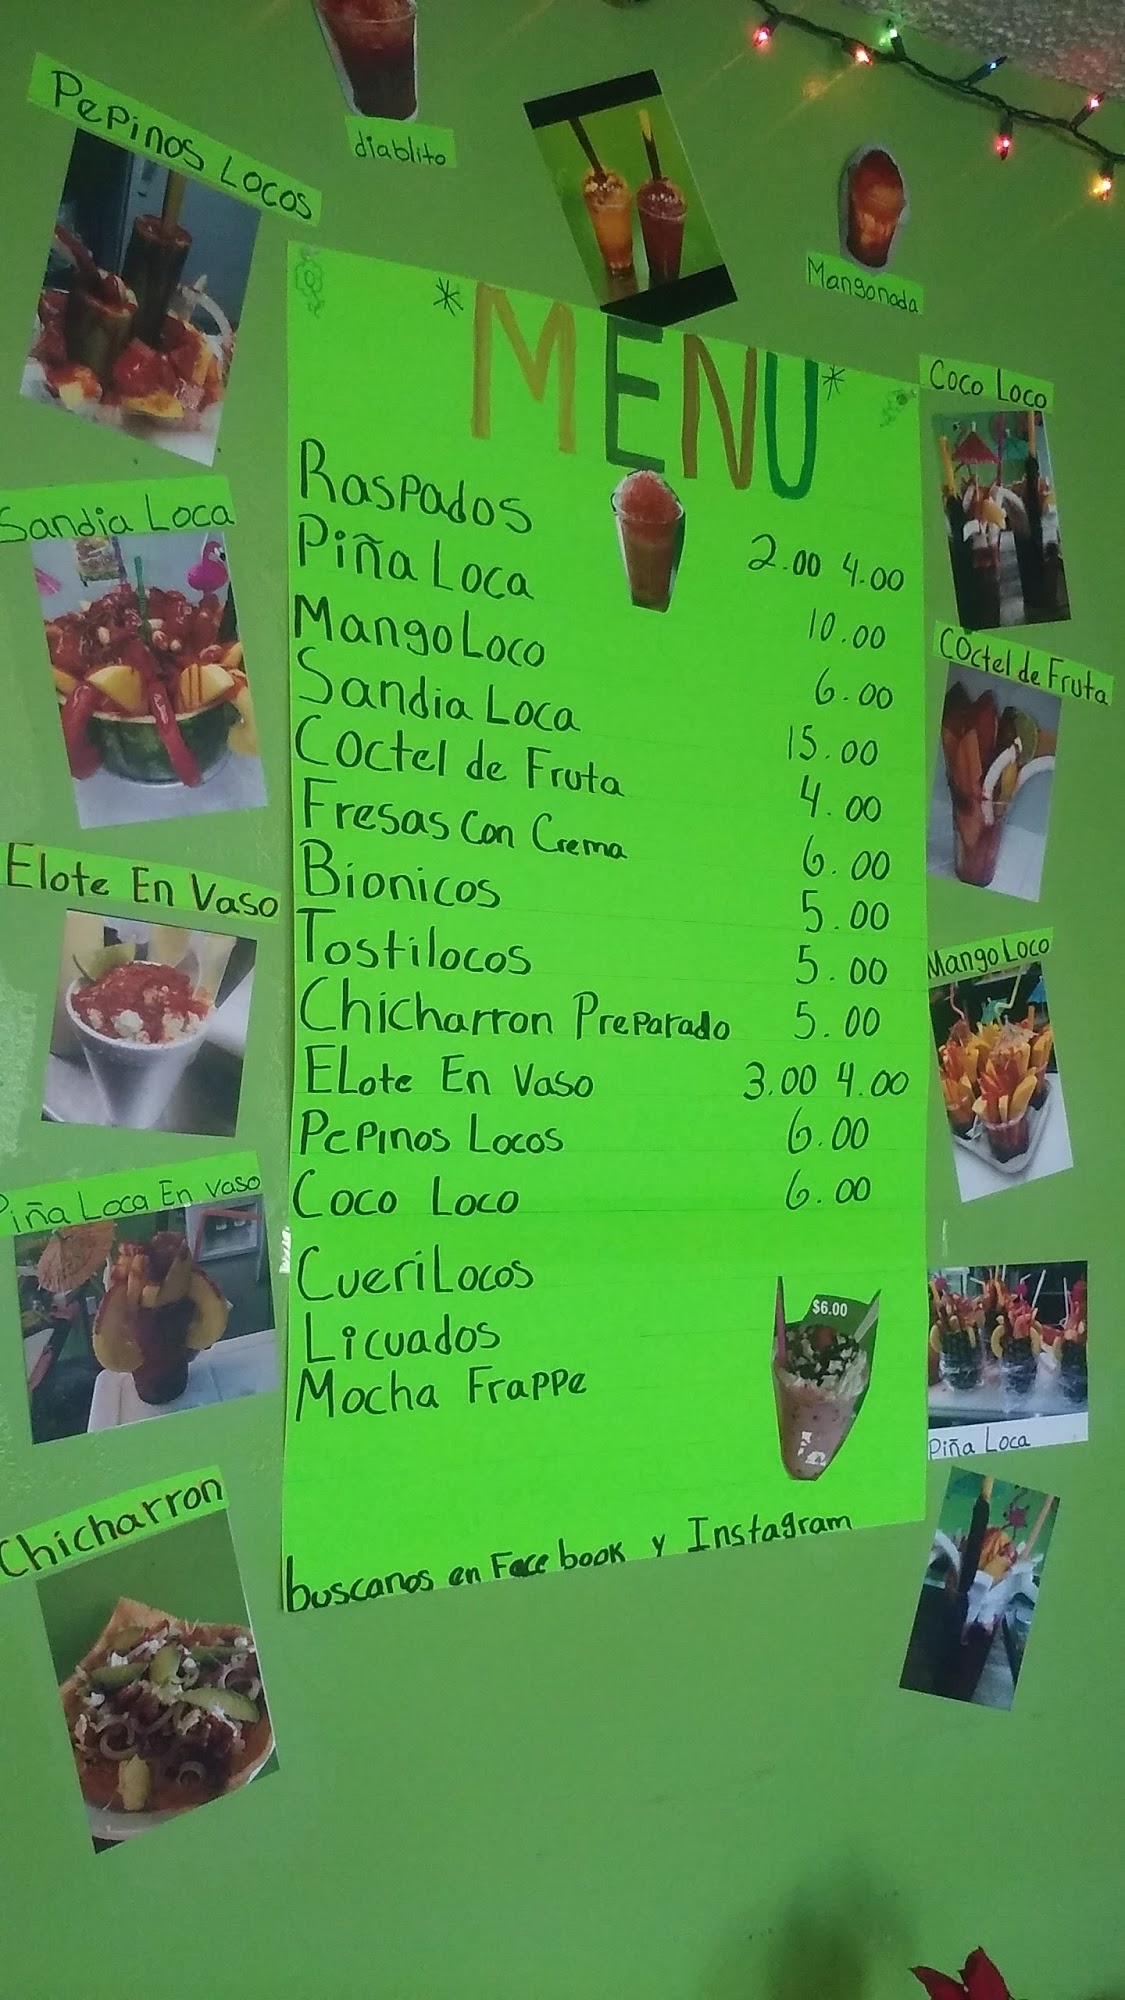 Pepinos Locos
diablito
Mangonada
* MENU *
Coco Loco
Raspados 2.00 4.00
Piña Loca 10.00
Mango Loco 6.00
Sandia Loca 15.00
Coctel de Fruta 4.00
Fresas Con Crema 6.00
Bionicos 5.00
Tostilocos 5.00
Chicharron Preparado 5.00
Elote En Vaso 3.00 4.00
Pepinos Locos 6.00
Coco Loco 6.00
Cuerilocos
Licuados
Mocha Frappe
$6.00
buscanos en Face book y Instagram
Sandia Loca
Elote En Vaso
Piña Loca En vaso
Chicharron
Coctel de Fruta
Mango Loco
Piña Loca